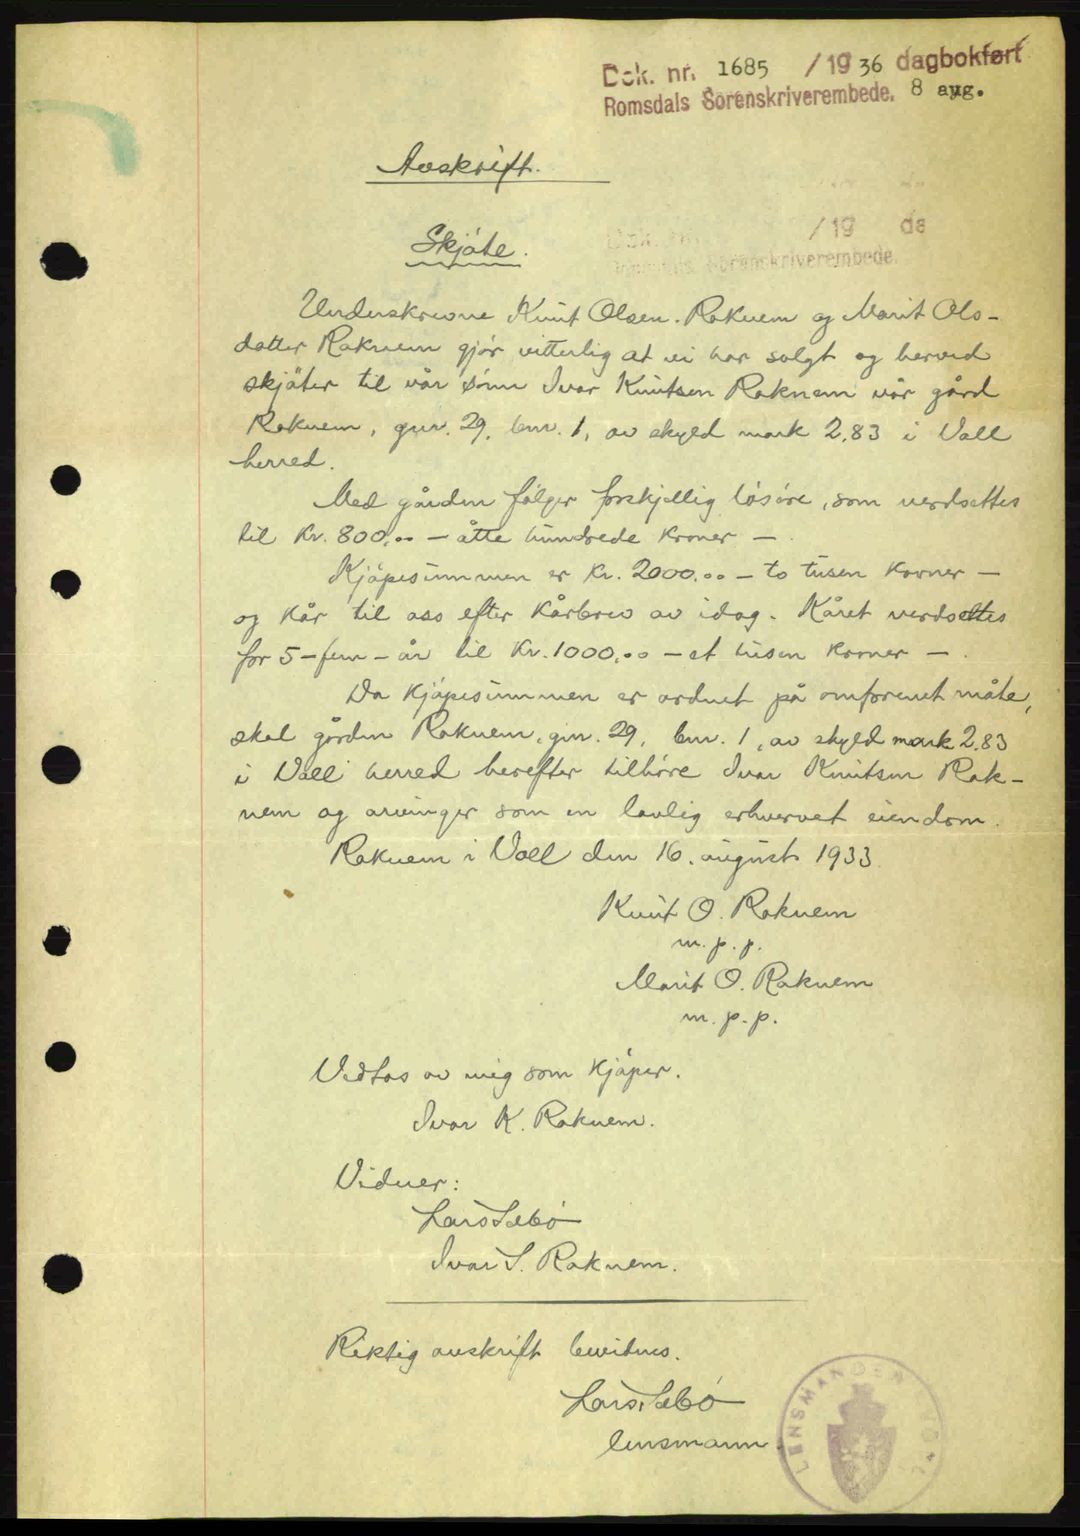 Dok. nr. 1685 / 1936 dagbokført
Romsdals Sorenskriverembede. 8 aug.
Avskrift.
Skjøte.
/ 19 da
Sorenskriverembede.
Underskrevne Knut Olsen Raknem og Marit Ols-
datter Raknem gjør vitterlig at vi har solgt og herved
skjøter til vår sønn Ivar Knutsen Raknem vår gård
Raknem, gnr. 29, bnr. 1, av skyld mark 2,83 i Voll
herred.
Med gården følger forskjellig løsøre, som verdsettes
til kr. 800,00 – åtte hundrede kroner –.
Kjøpesummen er kr. 2000,00 – to tusen kroner –
og kår til oss efter kårbrev av idag. Kåret verdsettes
for 5 – fem – år til kr. 1000,00 – et tusen kroner –.
Da kjøpesummen er ordnet på omforenet måte,
skal gården Raknem, gnr. 29, bnr. 1, av skyld mark 2,83
i Voll herred herefter tilhøre Ivar Knutsen Rak-
nem og arvinger som en lovlig erhvervet eiendom.
Raknem i Voll den 16. august 1933
Knut O. Raknem
m. p. p.
Marit O. Raknem
m. p. p.
Vedtas av mig som kjøper.
Ivar K. Raknem.
Vidner:
Lars Sæbø
Ivar S. Raknem.
Riktig avskrift bevitnes.
Lars Sæbø
lensmann.
LENSMANDEN I VOLL